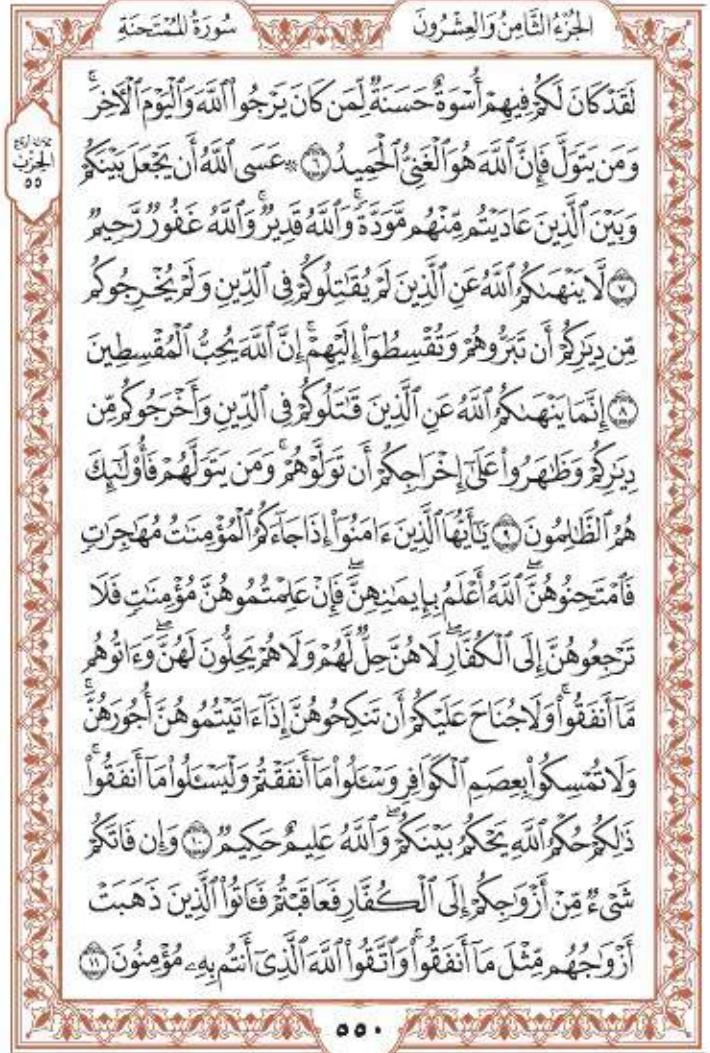 سُورَةُ المُمْتَحنَةِ
الجُزْءُ الثَّامِنُ وَالعِشْرُونَ
لَقَدْ كَانَ لَكُمْ فِيهِمْ أُسْوَةٌ حَسَنَةٌ لِّمَن كَانَ يَرْجُوا۟ ٱللَّهَ وَٱلْيَوْمَ ٱلْـَٔاخِرَۚ
وَمَن يَتَوَلَّ فَإِنَّ ٱللَّهَ هُوَ ٱلْغَنِىُّ ٱلْحَمِيدُ ۝٦ ۞ عَسَى ٱللَّهُ أَن يَجْعَلَ بَيْنَكُمْ
وَبَيْنَ ٱلَّذِينَ عَادَيْتُم مِّنْهُم مَّوَدَّةًۚ وَٱللَّهُ قَدِيرٌۚ وَٱللَّهُ غَفُورٌ رَّحِيمٌ
۝٧ لَّا يَنْهَىٰكُمُ ٱللَّهُ عَنِ ٱلَّذِينَ لَمْ يُقَٰتِلُوكُمْ فِى ٱلدِّينِ وَلَمْ يُخْرِجُوكُم
مِّن دِيَٰرِكُمْ أَن تَبَرُّوهُمْ وَتُقْسِطُوٓا۟ إِلَيْهِمْۚ إِنَّ ٱللَّهَ يُحِبُّ ٱلْمُقْسِطِينَ
۝٨ إِنَّمَا يَنْهَىٰكُمُ ٱللَّهُ عَنِ ٱلَّذِينَ قَٰتَلُوكُمْ فِى ٱلدِّينِ وَأَخْرَجُوكُم مِّن
دِيَٰرِكُمْ وَظَٰهَرُوا۟ عَلَىٰٓ إِخْرَاجِكُمْ أَن تَوَلَّوْهُمْۚ وَمَن يَتَوَلَّهُمْ فَأُو۟لَٰٓئِكَ
هُمُ ٱلظَّٰلِمُونَ ۝٩ يَٰٓأَيُّهَا ٱلَّذِينَ ءَامَنُوٓا۟ إِذَا جَآءَكُمُ ٱلْمُؤْمِنَٰتُ مُهَٰجِرَٰتٍ
فَٱمْتَحِنُوهُنَّۖ ٱللَّهُ أَعْلَمُ بِإِيمَٰنِهِنَّۖ فَإِنْ عَلِمْتُمُوهُنَّ مُؤْمِنَٰتٍ فَلَا
تَرْجِعُوهُنَّ إِلَى ٱلْكُفَّارِۖ لَا هُنَّ حِلٌّ لَّهُمْ وَلَا هُمْ يَحِلُّونَ لَهُنَّۖ وَءَاتُوهُم
مَّآ أَنفَقُوا۟ۚ وَلَا جُنَاحَ عَلَيْكُمْ أَن تَنكِحُوهُنَّ إِذَآ ءَاتَيْتُمُوهُنَّ أُجُورَهُنَّۚ
وَلَا تُمْسِكُوا۟ بِعِصَمِ ٱلْكَوَافِرِ وَسْـَٔلُوا۟ مَآ أَنفَقْتُمْ وَلْيَسْـَٔلُوا۟ مَآ أَنفَقُوا۟ۚ
ذَٰلِكُمْ حُكْمُ ٱللَّهِ يَحْكُمُ بَيْنَكُمْۖ وَٱللَّهُ عَلِيمٌ حَكِيمٌ ۝١٠ وَإِن فَاتَكُمْ
شَىْءٌ مِّنْ أَزْوَٰجِكُمْ إِلَى ٱلْكُفَّارِ فَعَاقَبْتُمْ فَـَٔاتُوا۟ ٱلَّذِينَ ذَهَبَتْ
أَزْوَٰجُهُم مِّثْلَ مَآ أَنفَقُوا۟ۚ وَٱتَّقُوا۟ ٱللَّهَ ٱلَّذِىٓ أَنتُم بِهِۦ مُؤْمِنُونَ ۝١١
الحِزْب
٥٥
٥٥٠